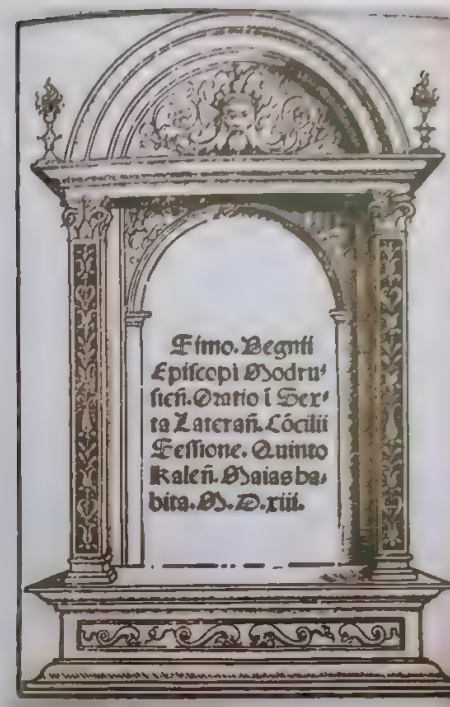 Simo. Begnii
Episcopi Modru⸗
sieñ. Oratio ĩ Sex⸗
ta Laterañ. Cõcilii
Sessione. Quinto
Kaleñ. Maias ha⸗
bita. M. D. xiii.